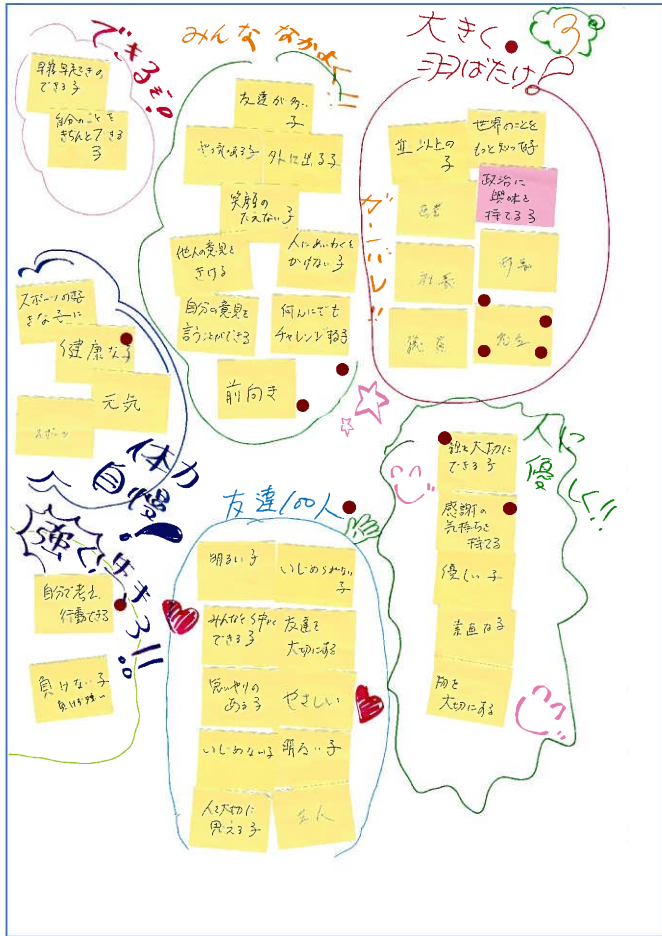 できるぞ!
早寝早起きの
できる子
自分のことを
きちんとできる
子
みんななかよく!!
友達が多い
子
やる気ある子
外に出る子
笑顔の
たえない子
他人の意見を
きける
人にめいわくを
かけない子
自分の意見を
言うことができる
何んにでも
チャレンジする子
前向き
3
大きく
羽ばたけ!
ガンバレ!!
並以上の
子
世界のことを
もっと知って子
政治に
興味を
持てる子
医者
社長
先生
スポーツの好
きな子に
健康な子
元気
スポーツ
体力
自慢!
強く生きろ!!
自分で考え、
行動できる
負けない子
友達100人
明るい子
いじめられない
子
みんなと仲よく
できる子
友達を
大切にする
思いやりの
ある子
やさしい
いじめない子
明るい子
人を大切に
思える子
友人
人に
優しく!!
親を大切に
できる子
感謝の
気持ちを
持てる
優しい子
素直な子
物を
大切にする